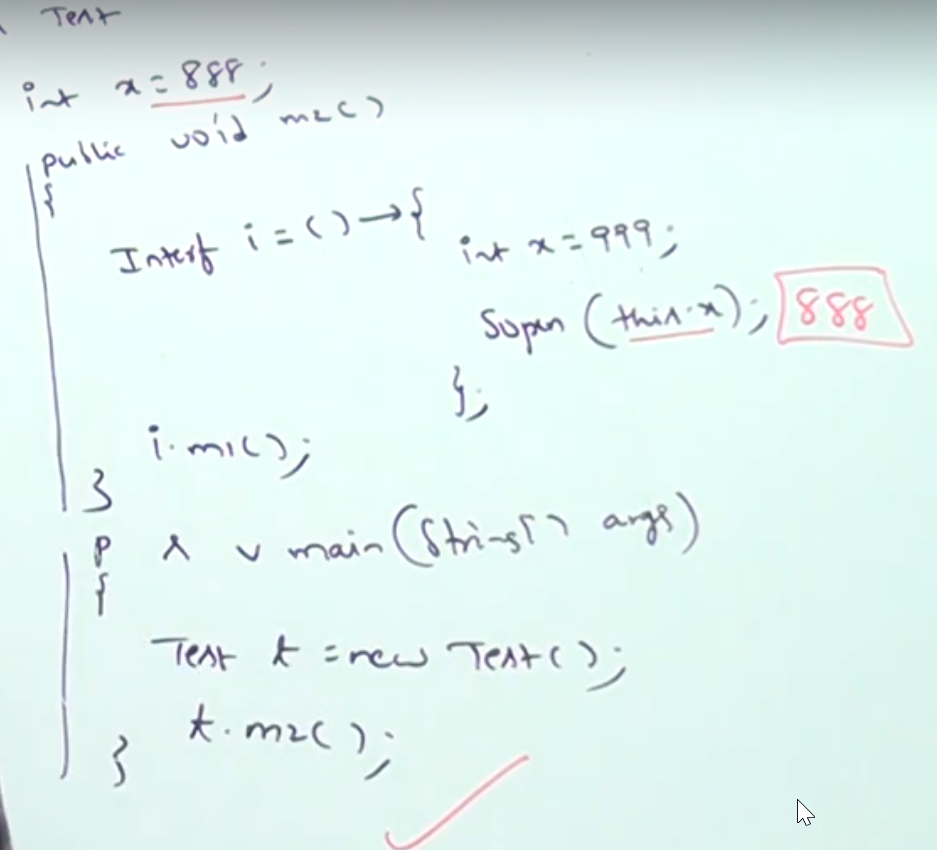 Test
int x = 888;
public void m2()
{
Interf i = () → {
int x = 999;
Sopln (this.x); 888
};
i.m1();
}
P s v main(String[] args)
{
Test t = new Test();
t.m2();
}